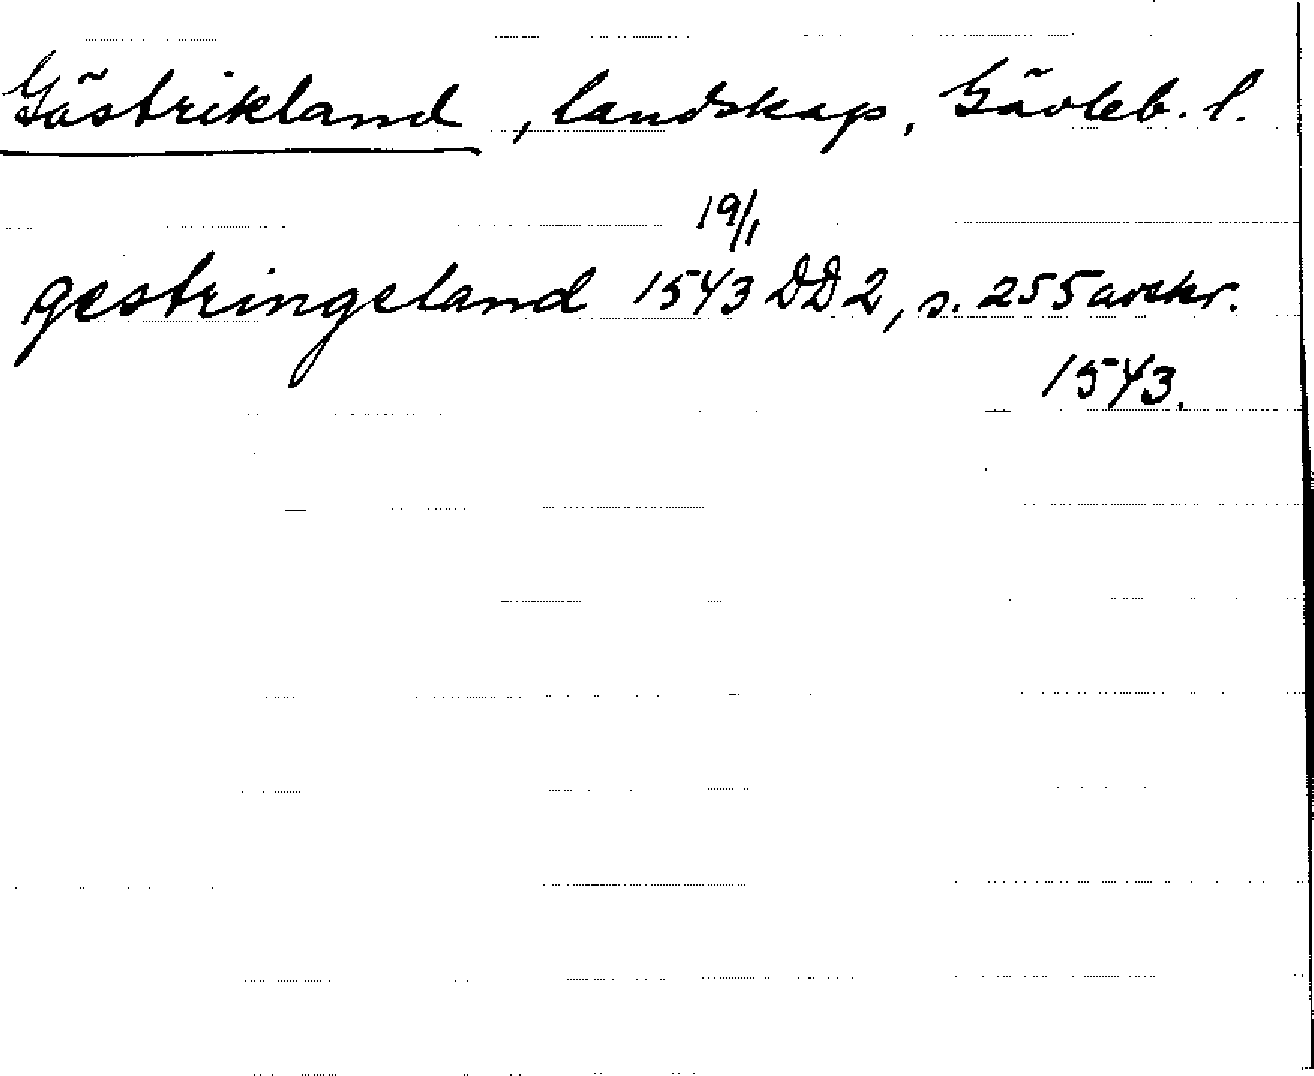 Gästrikland, landskap, Gävleb. l.
19/1
gestringeland 1543 DD 2, s. 255 avskr.
1543.